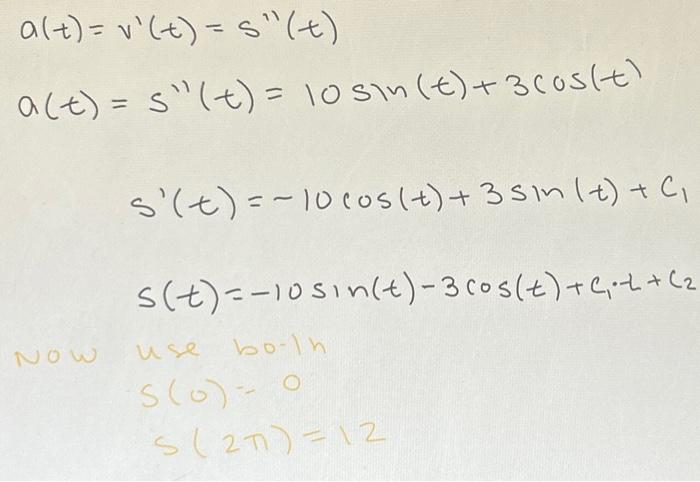 a(t) = v'(t) = s''(t)
a(t) = s''(t) = 10 sin(t) + 3 cos(t)
s'(t) = -10 cos(t) + 3 sin(t) + C₁
s(t) = -10 sin(t) - 3 cos(t) + C₁·t + C₂
NOW use both
s(0) = 0
s(2π) = 12